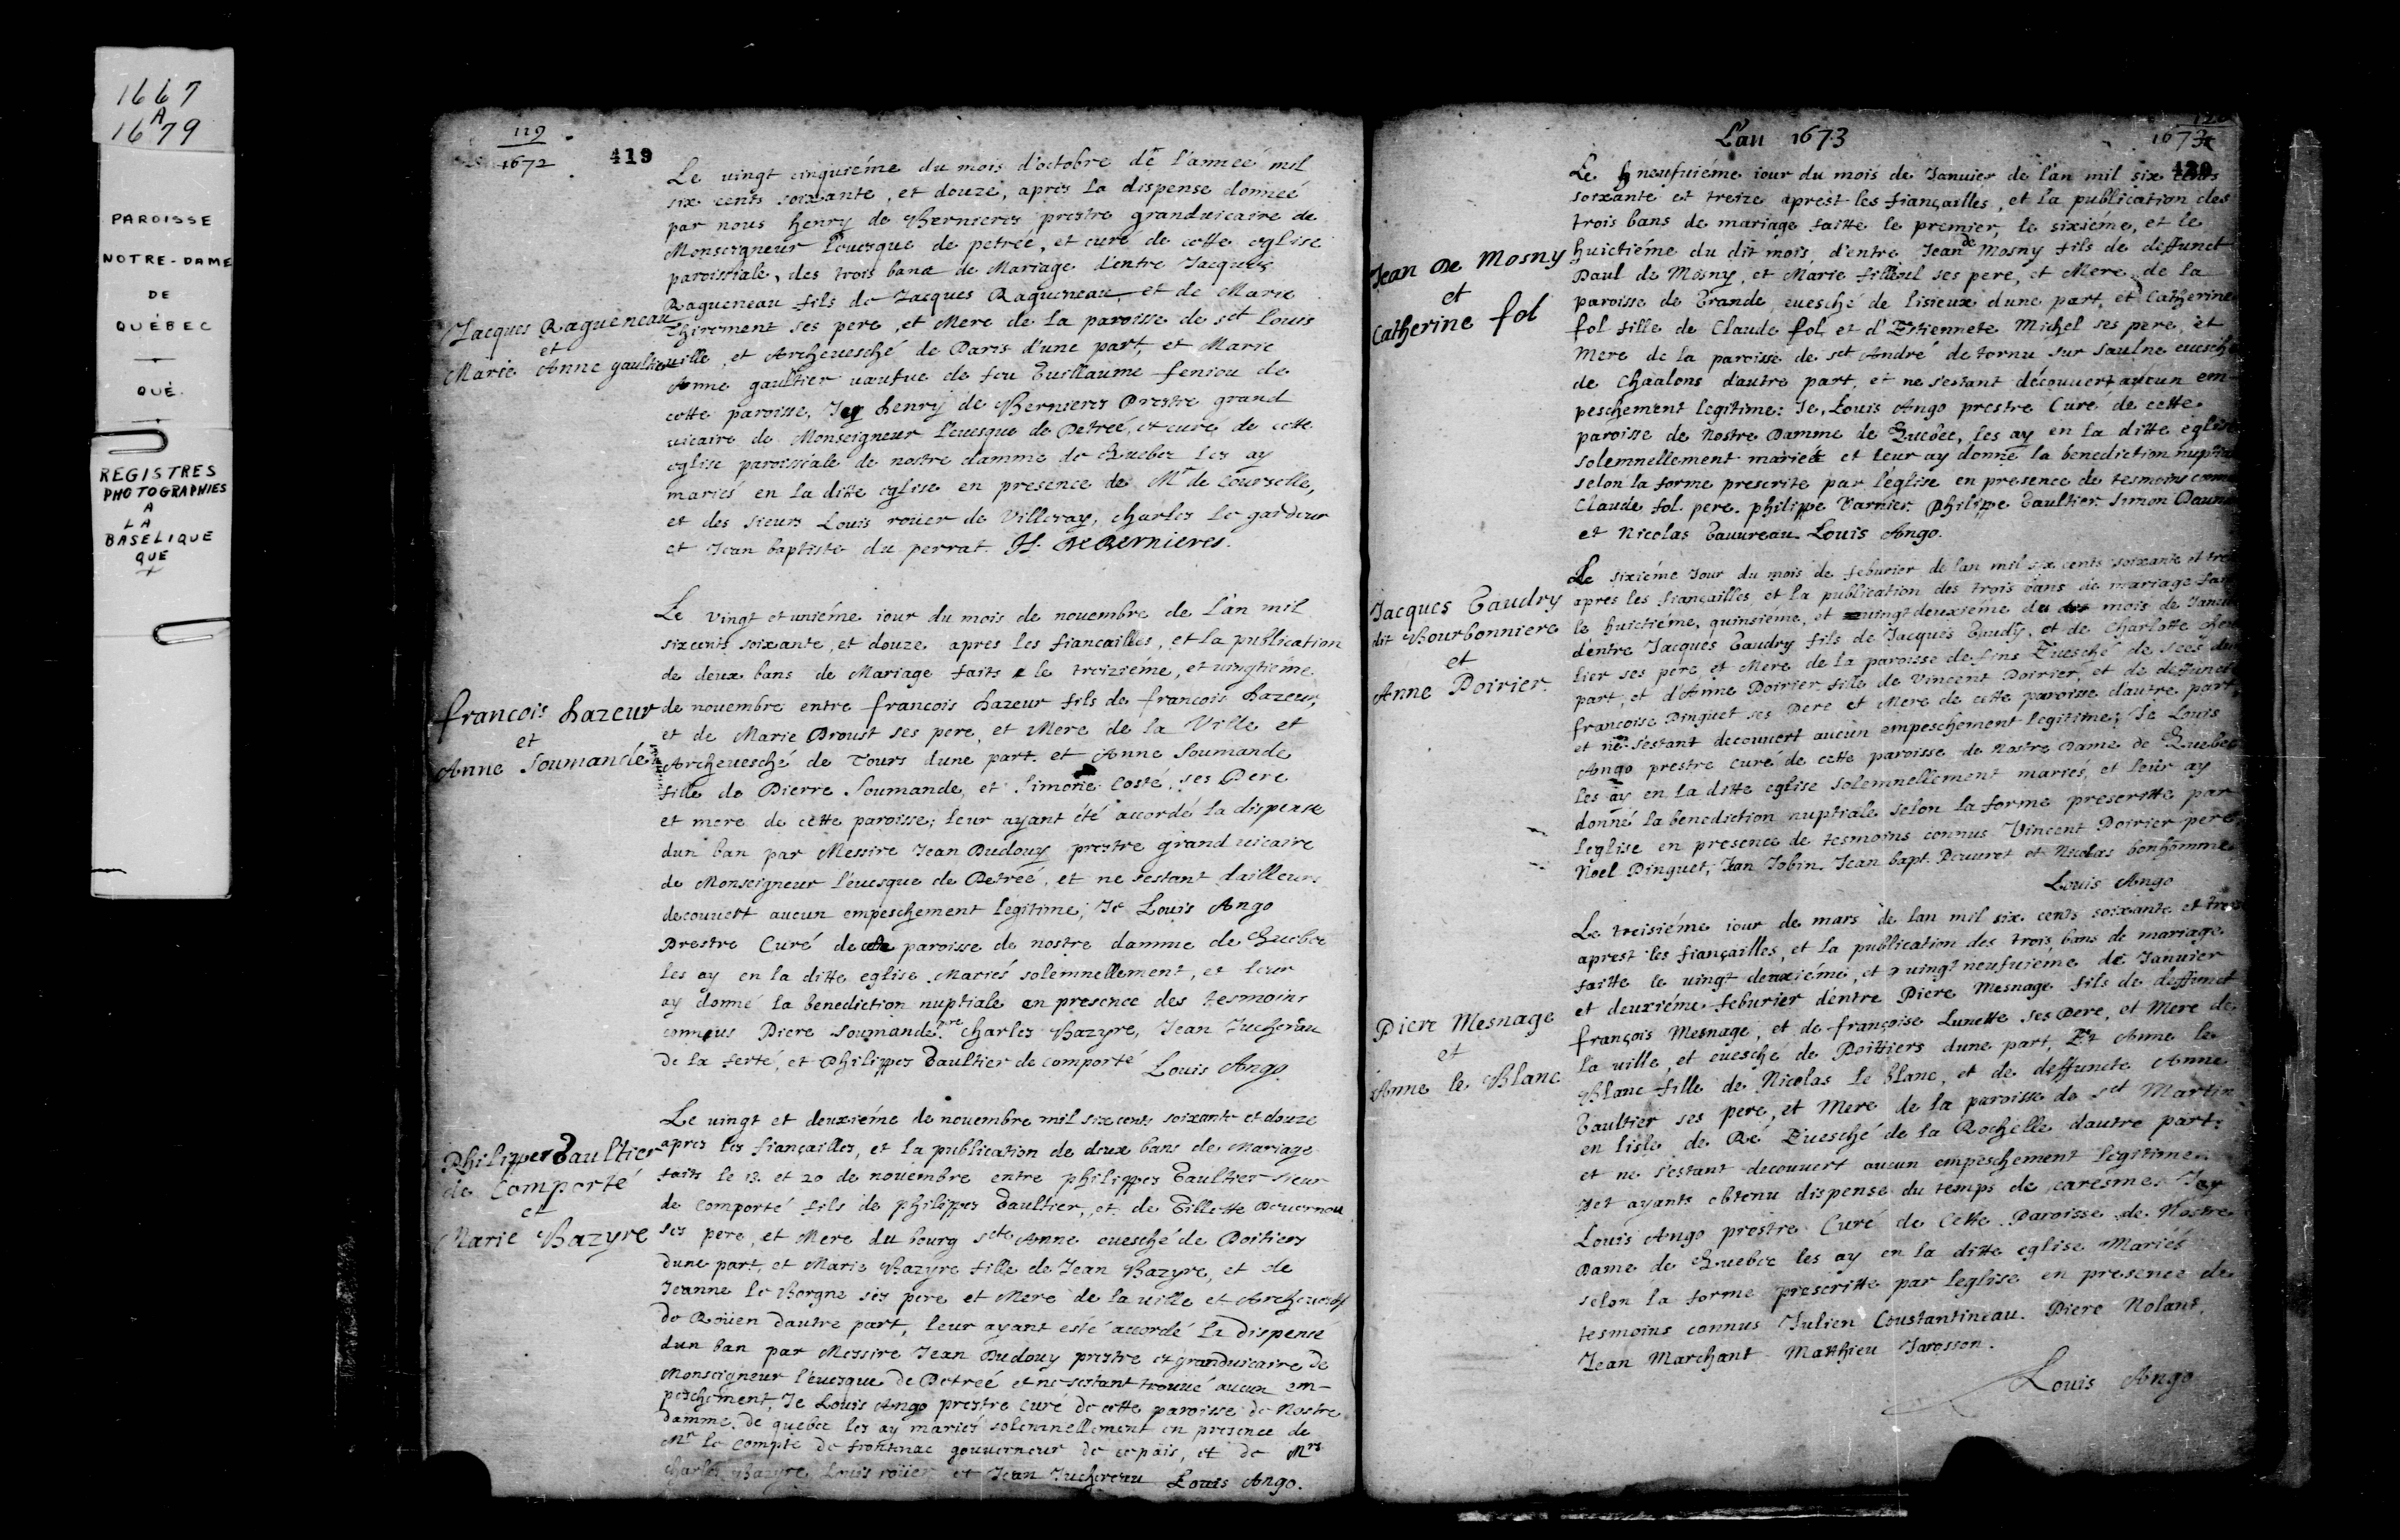 1667
A
1679
PAROISSE
NOTRE-DAME
DE
QUÉBEC
QUÉ.
REGISTRES
PHOTOGRAPHIES
A
LA
BASELIQUE
QUE
119
1672
419
Le vingt cinquiéme du mois d'octobre de l'anneé mil
six cents soixante, et douze, aprés la dispense donneé
par nous henry de Bernieres prestre grand vicaire de
Monseigneur l'euesque de petreé, et curé de cette eglise
paroissiale, des trois bans de Mariage d'entre Jacques
Ragueneau fils de Jacques Ragueneau et de Marie
Jacques Ragueneau
et
Marie Anne gaultier
Thirement ses pere, et Mere de la paroisse de sct louis
ville, et Archeuesché de Paris d'une part, et Marie
Anne gaultier uaufue de feu Guillaume feniou de
cette paroisse, Jey henry de Bernieres Prestre grand
uicaire de Monseigneur l'euesque de Petreé, et curé de cette
eglise paroissiale de nostre damme de Quebec les ay
mariés en la ditte eglise en presence de Mr de Courselle,
et des sieurs Louis roüer de Villeray, charles le gardeur
et Jean baptiste du perrat. H. DeBernieres.
Le vingt et uniéme iour du mois de novembre de l'an mil
sixcents soixante, et douze apres les fiancailles, et la publication
de deux bans de Mariage faits le treiziéme, et uingtieme
francois hazeur
et
Anne Soumande
de novembre entre francois hazeur fils de francois hazeur,
et de Marie Proust ses pere, et Mere de la Ville et
Archeuesché de Tours dune part. et Anne Soumande
fille de Pierre Soumande, et Simone Costé, ses Pere
et mere de cette paroisse; leur ayant été accordé la dispense
dun ban par Messire Jean Dudouy prestre grand uicaire
de Monseigneur l'euesque de Petreé, et ne sestant dailleurs
decouvert aucun empeschement legitime; Je Louis Ango
Prestre Curé de cette paroisse de nostre damme de Quebec
les ay en la ditte eglise Mariés solemnellement, et leur
ay donné la benediction nuptiale en presence des tesmoins
connus Piere Soumande pre charles Bazyre, Jean Juchereau
de la ferté, et Philippes Gaultier de comporté Louis Ango
Le uingt et deuxiéme de novembre mil sixcents soixante et douze
Philippes Gaultier
de Comporté
et
Marie Bazyre
apres les fiançailles, et la publication de deux bans de Mariage
faits le 13 et 20 de novembre entre philippes Gaultier sieur
de comporté fils de philippes Gaultier, et de Gillette
ses pere, et Mere du bourg scte Anne euesché de Poitiers
dune part, et Marie Bazyre fille de Jean Bazyre, et de
Jeanne le Borgne ses pere et Mere de la uille et Archeuesché
de Roüen dautre part, leur ayant esté accordé la dispense
dun ban par Messire Jean Dudouy prestre et granduicaire de
Monseigneur l'euesque de Petreé et ne sestant trouué aucun em-
peschement, Je Louis Ango prestre Curé de cette paroisse de Nostre
damme de quebec les ay mariés solemnellement en presence de
Mr le Compte de frontenac gouuerneur de ce païs, et de Mrs
charles Bazyre, Louis roüer et Jean Juchereau Louis Ango.
L'an 1673
1673
420
Le neufuiéme iour du mois de Januier de l'an mil six cents
soixante et treize aprest les fiançailles, et la publication des
trois bans de mariage faitte le premier, le sixiéme, et le
Jean De Mosny
et
Catherine fol
huictiéme du dit mois, d'entre Jean de Mosny fils de deffunct
Paul de Mosny, et Marie filleul ses pere, et Mere de la
paroisse de Grande euesché de lisieux dune part, et Catherine
fol fille de Claude fol, et d'Estiennete Michel ses pere, et
mere de la paroisse de sct André de tornu sur saulne euesché
de Chaalons dautre part, et ne s'estant découvert aucun em-
peschement legitime: Je, Louis Ango prestre Curé de cette
paroisse de Nostre Damme de Quebec, les ay en la ditte eglise
solemnellement mariés et leur ay donné la benediction
selon la forme prescrite par l'église en presence de tesmoins
Claude fol pere. philippe Varnier. Philippe Gaultier. Simon
et Nicolas Gauureau. Louis Ango.
Le sixiéme Jour du mois de feburier de lan mil six cents soixante et
apres les fiançailles, et la publication des trois bans de mariage
Jacques Gaudry
dit Bourbonniere
et
Anne Poirier.
le huictiéme, quinsiéme, et uingt deuxiéme du mois de
dentre Jacques Gaudry fils de Jacques Gaudry, et de Charlotte
lier ses pere, et Mere de la paroisse de fins Euesché de sees
part, et d'Anne Poirier fille de Vincent Poirier, et de deffuncte
françoise Pinguet ses Pere et Mere de cette paroisse dautre part,
et ne s'estant decouvert aucun empeschement legitime; Je Louis
Ango prestre Curé de cette paroisse de Nostre Dame de Quebec
les ay en la ditte eglise solemnellement mariés, et leur ay
donné la benediction nuptiale selon la forme prescritte par
leglise en presence de tesmoins connus Vincent Poirier pere
Noel Pinguet, Jean Jobin. Jean bapt. Peuuret et Nicolas bonhomme
Louis Ango
Le treisiéme iour de mars de lan mil six cents soixante et
aprest les fiançailles, et la publication des trois bans de mariage
faitte le uingt deuxiéme, et uingt neufuieme de Januier
Piere Mesnage
et
Anne le Blanc
et deuxiéme feburier dentre Piere Mesnage fils de deffunct
françois Mesnage, et de françoise Lunette ses Pere, et Mere de
la uille, et euesché de Poittiers dune part, Et Anne le
Blanc fille de Nicolas le blanc, et de deffuncte Anne
Gaultier ses pere, et Mere de la paroisse de sct Martin
en lisle de Ré Euesché de la Rochelle dautre part:
et ne s'estant decouvert aucun empeschement legitime.
ayants obtenu dispense du temps de caresme. Jey
Louis Ango prestre Curé de Cette Paroisse de Nostre
Dame de Quebec les ay en la ditte eglise Mariés
selon la forme prescritte par leglise en presence de
tesmoins connus Julien Constantineau. Piere Nolant,
Jean Marchant Matthieu Jarosson.
Louis Ango